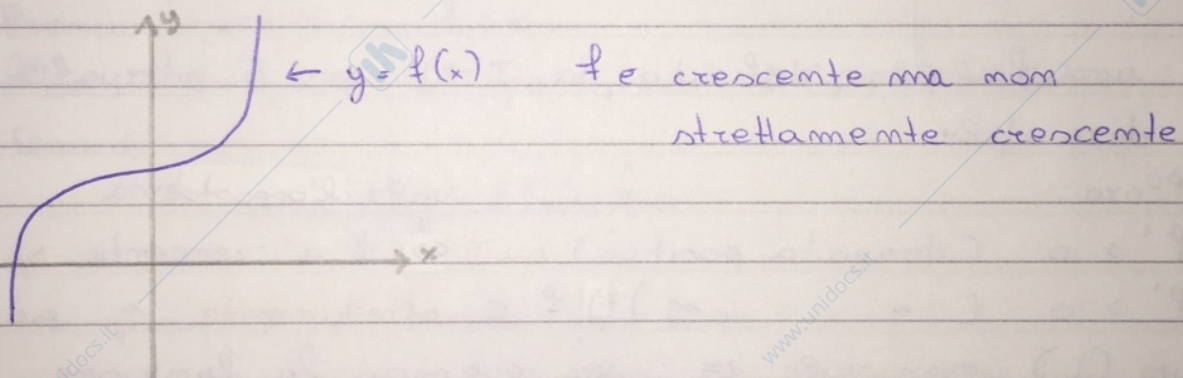 y
← y = f(x) f e crescente ma non
strettamente crescente
x
www.unidocs.it
idocs.it